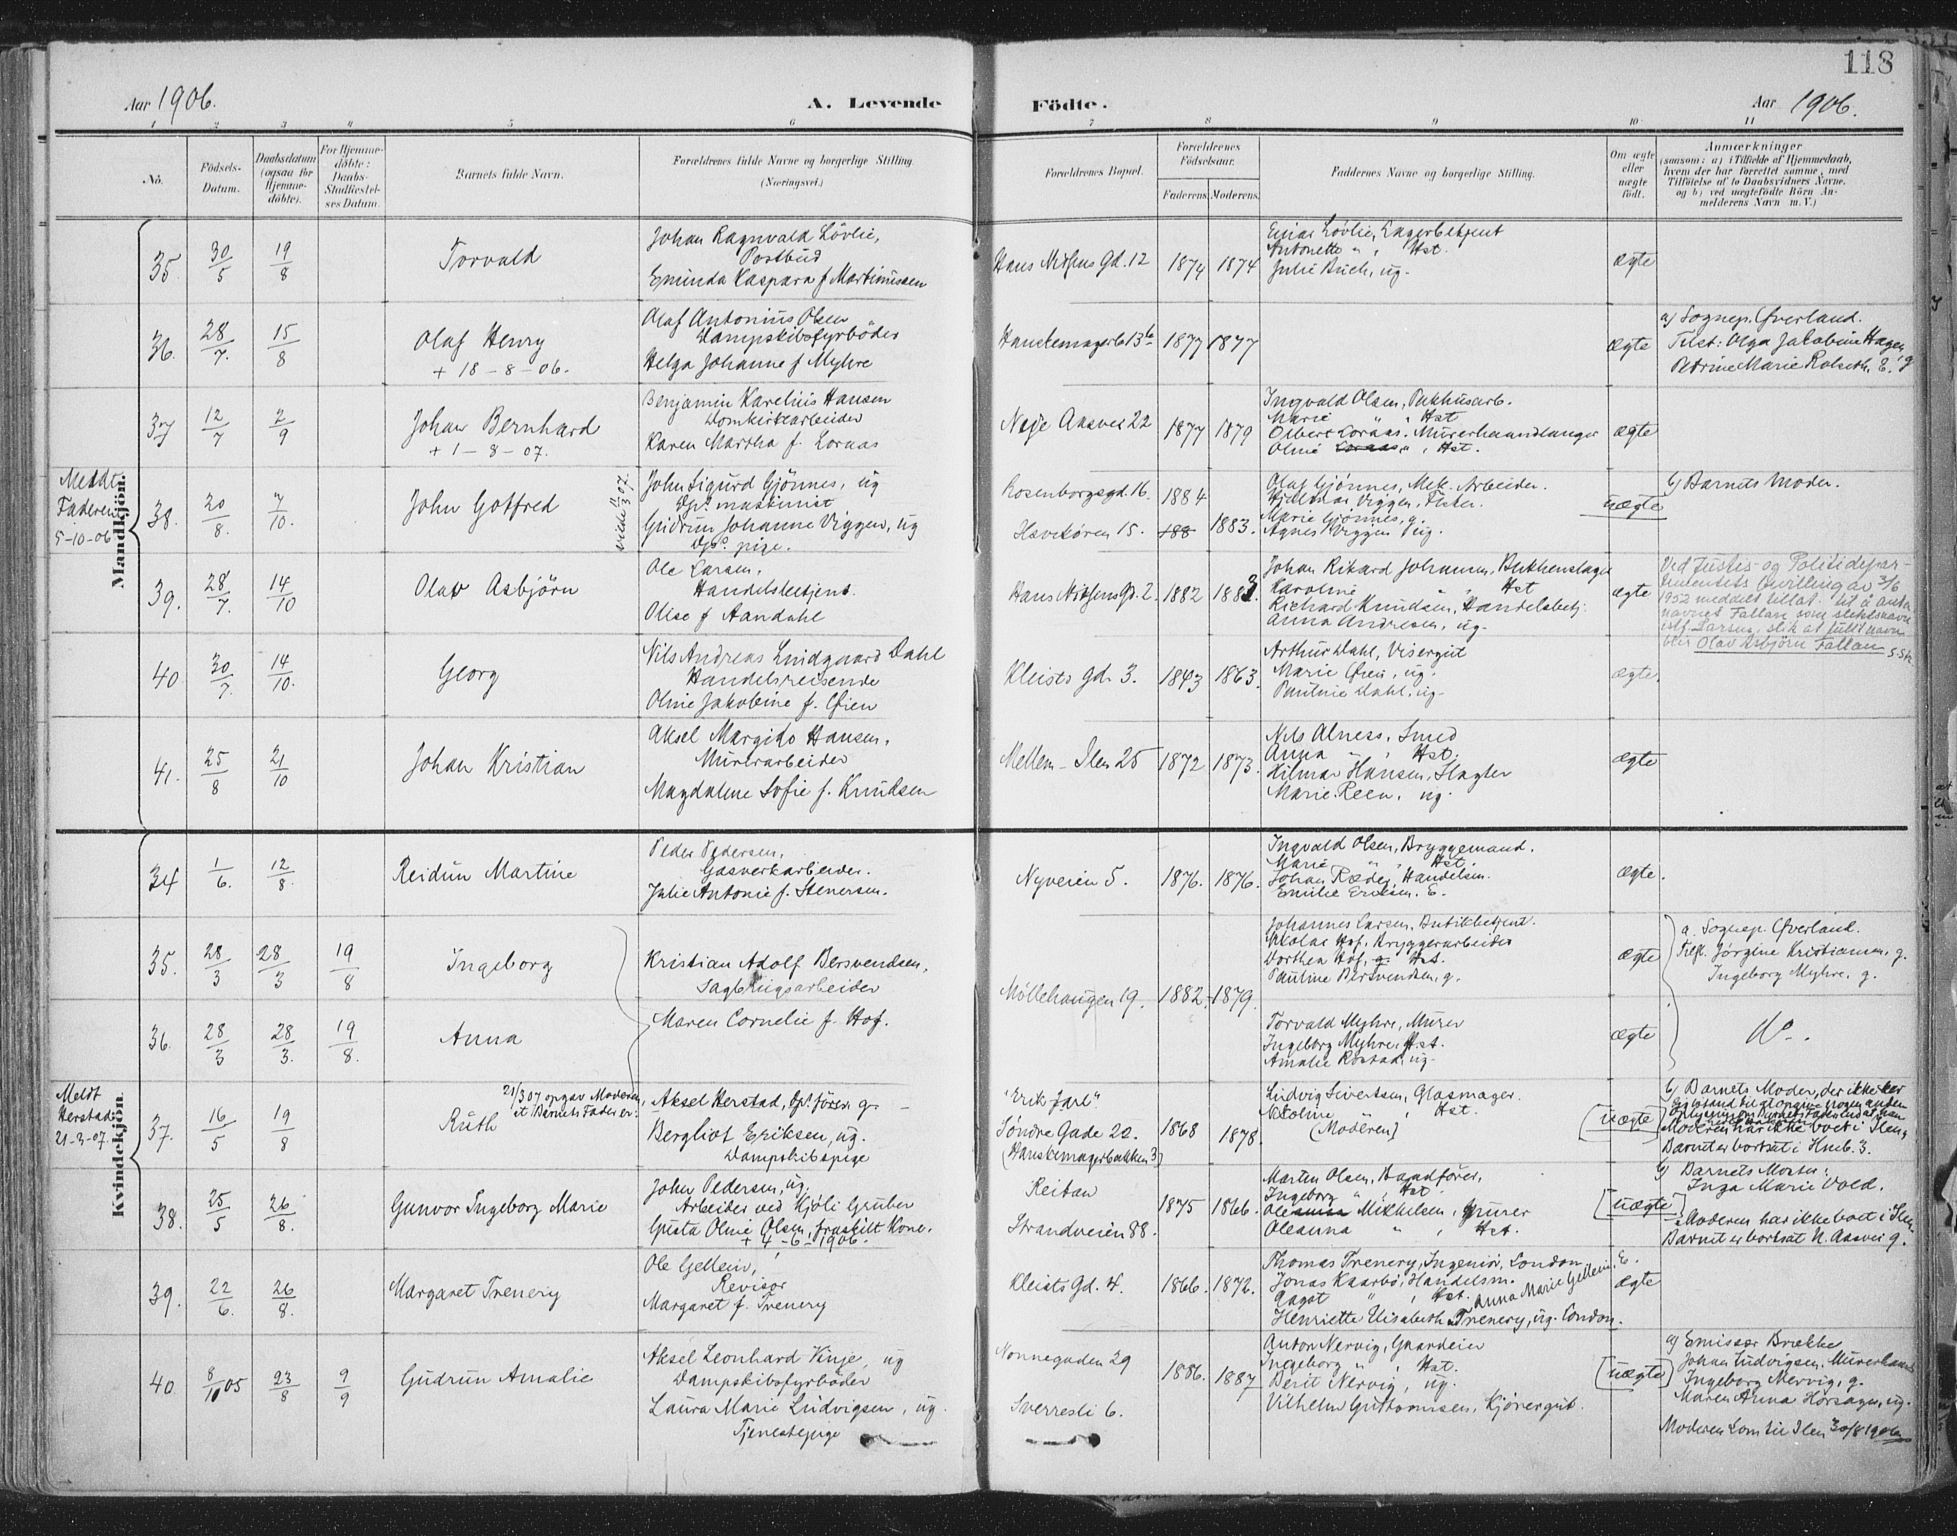 118
Aar 1906.
A. Levende
Födte.
Aar 1906.
1 2 3 4 5 6 7 8 9 10 11
No.
Födsels-Datum.
Daabsdatum (ogsaa for Hjemme-döbte).
For Hjemme-döbte: Daabs-Stadfæstel-ses Datum.
Barnets fulde Navn.
Forældrenes fulde Navne og borgerlige Stilling. (Næringsvei.)
Forældrenes Bopæl.
Forældrenes Födselsaar.
Faderens.
Moderens.
Faddernes Navne og borgerlige Stilling.
Om ægte eller uægte födt.
Anmerkninger
(saasom: a) i Tilfælde af Hjemmedaab, hvem der har forrettet samme, med Tilföielse af to Daabsvidners Navne, og b) ved uegtefödte Börn An-melderens Navn m. V.)
Mandkjön.
35. 30/5 19/8 Torvald
Johan Ragnvald Lövlie,
Postbud
Eminda Kaspara f Martinussen
Hans Nissens Gd. 12 1874 1874
Einar Lövlie, Lagerbetjent
Antonette " , Hst.
Julie Buch, ug.
ægte
36. 28/7 15/8 Olaf Henry
+ 18-8-06.
Olaf Antonius Olsen
Dampskibsfyrböder
Helga Johanne f Myhre
Hanskemagerb 13b 1877 1877
ægte
a) Sognep. Øverland.
Tilst: Olga Jakobine Hagen, g
Petrine Marie Rolseth, E.
37 12/7 2/9 Johan Bernhard
+ 1-8-07.
Benjamin Karelius Hansen
Domkirkearbeider
Karen Martha f. Loraas
Neje Aasvei 22 1877 1879
Ingvald Olsen, Pakhusarb.
Marie " , Hst
Olbert Loraas, Murerhaandlanger
Oline Loraas " , Hst.
ægte
Meldt
Faderen
5-10-06
38. 20/8. 7/10. John Gotfred
John Sigurd Gjönnes, ug
Dps. maskinist
Gudrun Johanne Viggen, ug
Dps. pige.
Rosenborgsgd. 16. 1884
Havikören 15. 188 1883.
Olaf Gjönnes, Mek. Arbeider.
Hjelmar Viggen, Fisker.
Marie Gjönnes, g.
Agnes Viggen ug.
uægte
b) Barnets Moder.
39. 28/7. 14/10 Olav Asbjörn
Ole Larsen,
Handelsbetjent.
Olise f Aandahl
Hans Nissens Gd. 2. 1882 1883.
Johan Rikard Johansen, Bukkenslager
Karoline " , Hst
Richard Knudsen, Handelsbetj.
Anna Andresen, ug.
ægte
Ved Justis- og Politidepar-
tementets bevilling av 3/6
1952 meddelt tillat. til å anta
navnet Fallan som slektsnavn
istf. Larsen, slik at fullt navn
blir Olav Asbjörn Fallan
40 30/7. 14/10. Georg
Nils Andreas Lindgaard Dahl
Handelsreisende
Oline Jakobine f. Øien
Kleists Gd. 3. 1843 1863.
Arthur Dahl, Visergut
Marie Øien, ug.
Pauline Dahl, ug.
ægte.
41. 25/8 21/10 Johan Kristian
Aksel Margido Hansen,
Murerarbeider
Magdalene Sofie f. Knudsen
Mellem-Ilen 25 1872 1873.
Nils Alness, Smed
Anna " , Hst.
Hilmar Hansen, Slagter
Marie Reen, ug.
ægte
Kvindekjön.
34 1/6. 12/8. Reidun Martine
Peder Pedersen,
Gasverkarbeider.
Julie Antonie f. Stenersen.
Nyveien 5. 1876. 1876.
Ingvald Olsen, Bryggemand.
Marie " , Hst.
Johan Ræder, Handelsm.
Emilie Eriksen. E.
ægte.
35. 28/3 28/3 19/8 Ingeborg
Kristian Adolf Bersvendsen,
Sagbrugsarbeider
Maren Cornelie f. Hof.
Möllehaugen 19. 1882. 1879.
Johannes Larsen, Butikbetjent.
Nikolai Hof, Bryggerarbeider
Dorthea Hof, Hst.
Pauline Bersvendsen, g.
ægte
a. Sognep. Øverland.
Tilst. Jørgine Kristiansen, g.
Ingeborg Myhre, g.
36. 28/3 28/3. 19/8. Anna
Torvald Myhre, Murer
Ingeborg Myhre, Hst.
Amalie Rostad, ug.
ægte
Do.
Meldt
Herstad
21-3-07.
37. 16/5 19/8 Ruth
21/3 07 opgav Moderen,
at Barnets Fader er:
Aksel Herstad, Dps. förer. g.
Bergliot Eriksen, ug.
Dampskibspige
"Erik Jarl" 1868
Søndre Gade 22. 1878.
(Hanskemagerbakken 3)
Ludvig Sivertsen, Glasmager.
Nicoline " , Hst.
(Moderen)
[uægte]
b) Barnets Moder, der ikke ser
Moderen har ikke boet i Ilen,
Barnet er bortsat i Hmb. 3.
38. 25/5 26/8. Gunvor Ingeborg Marie
John Pedersen, ug.
Arbeider ved Kjöli Gruber
Gusta Oline Olsen, fraskilt Kone.
+ 4-6-1906.
Reitan 1875 1866.
Strandveien 88.
Martin Olsen, Baandförer,
Ingeborg " , Hst.
Ole Mikkelsen, Murer
Oleanna " , Hst.
[uægte]
b) Barnets Moster:
Inga Marie Vold.
Moderen har ikke boet i Ilen
Barnet er bortsat N. Aasvei 9.
39. 22/6. 26/8. Margaret Trenery
Ole Gellein,
Revisor
Margaret f. Trenery
Kleists Gd. 4. 1866. 1872.
Thomas Trenery, Ingeniör, London, E.
Jonas Kaarbö, Handelsm.
Dagot " , Hst. Anna Marie Gellein,
Henriette Elisabeth Trenery, ug. London.
ægte
40 8/10 05 23/8 9/9 Gudrun Amalie
Aksel Leonhard Vinje, ug
Dampskibsfyrböder
Laura Marie Ludvigsen, ug.
Tjenestepige
Nonnegaden 29 1886. 1887
Sverresli 6.
Anton Nervig, Gaardeier
Ingeborg " , Hst.
Berit Nervig, ug.
Vilhelm Guttormsen, Kjörergut.
[uægte]
a) Emissær Brække
Johan Ludvigsen, Murerhaandl.
Ingeborg Nervig, g.
Maren Anna Horsagen, ug.
Moderen kom til Ilen 30/8 1906